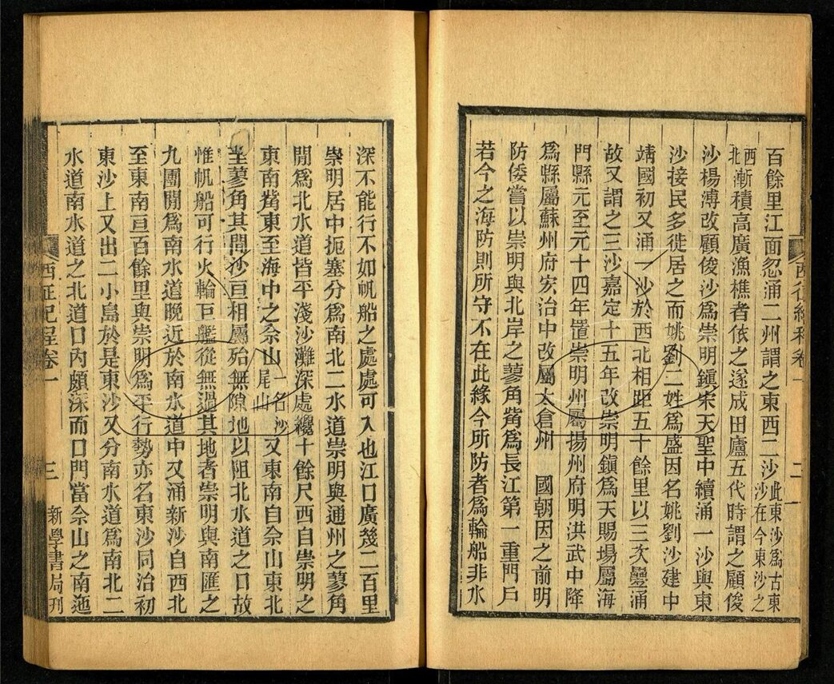 百餘里江面忽涌二州謂之東西二沙此東沙爲古東沙在今東沙之
西北漸積高廣漁樵者依之遂成田廬五代時謂之顧俊
沙楊溥改顧俊沙爲崇明鎮宋天聖中續涌一沙與東
沙接民多徙居之而姚劉二姓爲盛因名姚劉沙建中
靖國初又涌一沙於西北相距五十餘里以三次疊涌
故又謂之三沙嘉定十五年改崇明鎮爲天賜場屬海
門縣元至元十四年置崇明州屬揚州府明洪武中降
爲縣屬蘇州府宏治中改屬太倉州 國朝因之前明
防倭嘗以崇明與北岸之蓼角觜爲長江第一重門戶
若今之海防則所守不在此緣今所防者爲輪船非水
深不能行不如帆船之處處可入也江口廣幾二百里
崇明居中扼塞分爲南北二水道崇明與通州之蓼角
閒爲北水道皆平淺沙灘深處纔十餘尺西自崇明之
東南觜東至海中之佘山一名沙尾山又東南自佘山東北
至蓼角其閒沙亘相屬殆無隙地以阻北水道之口故
惟帆船可行火輪巨艦從無過其地者崇明與南匯之
九團閒爲南水道晚近於南水道中又涌新沙自西北
至東南亘百餘里與崇明爲平行勢亦名東沙同治初
東沙上又出二小島於是東沙又分南水道爲南北二
水道南水道之北道口內頗深而口門當佘山之南迤
西征紀程卷一
三
新學書局刊